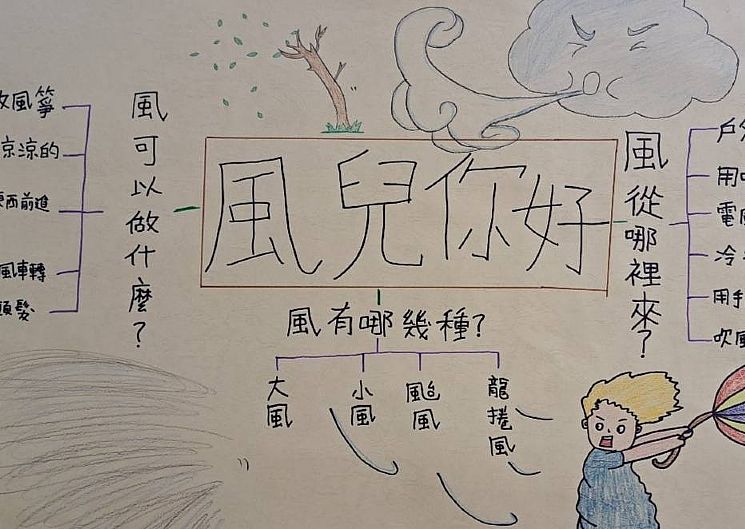 風兒你好
風可以做什麼?
放風箏
涼涼的
東西前進
風車轉
頭髮
風有哪幾種?
大風
小風
颱風
龍捲風
風從哪裡來?
戶外
用
電風
冷
用手
吹風